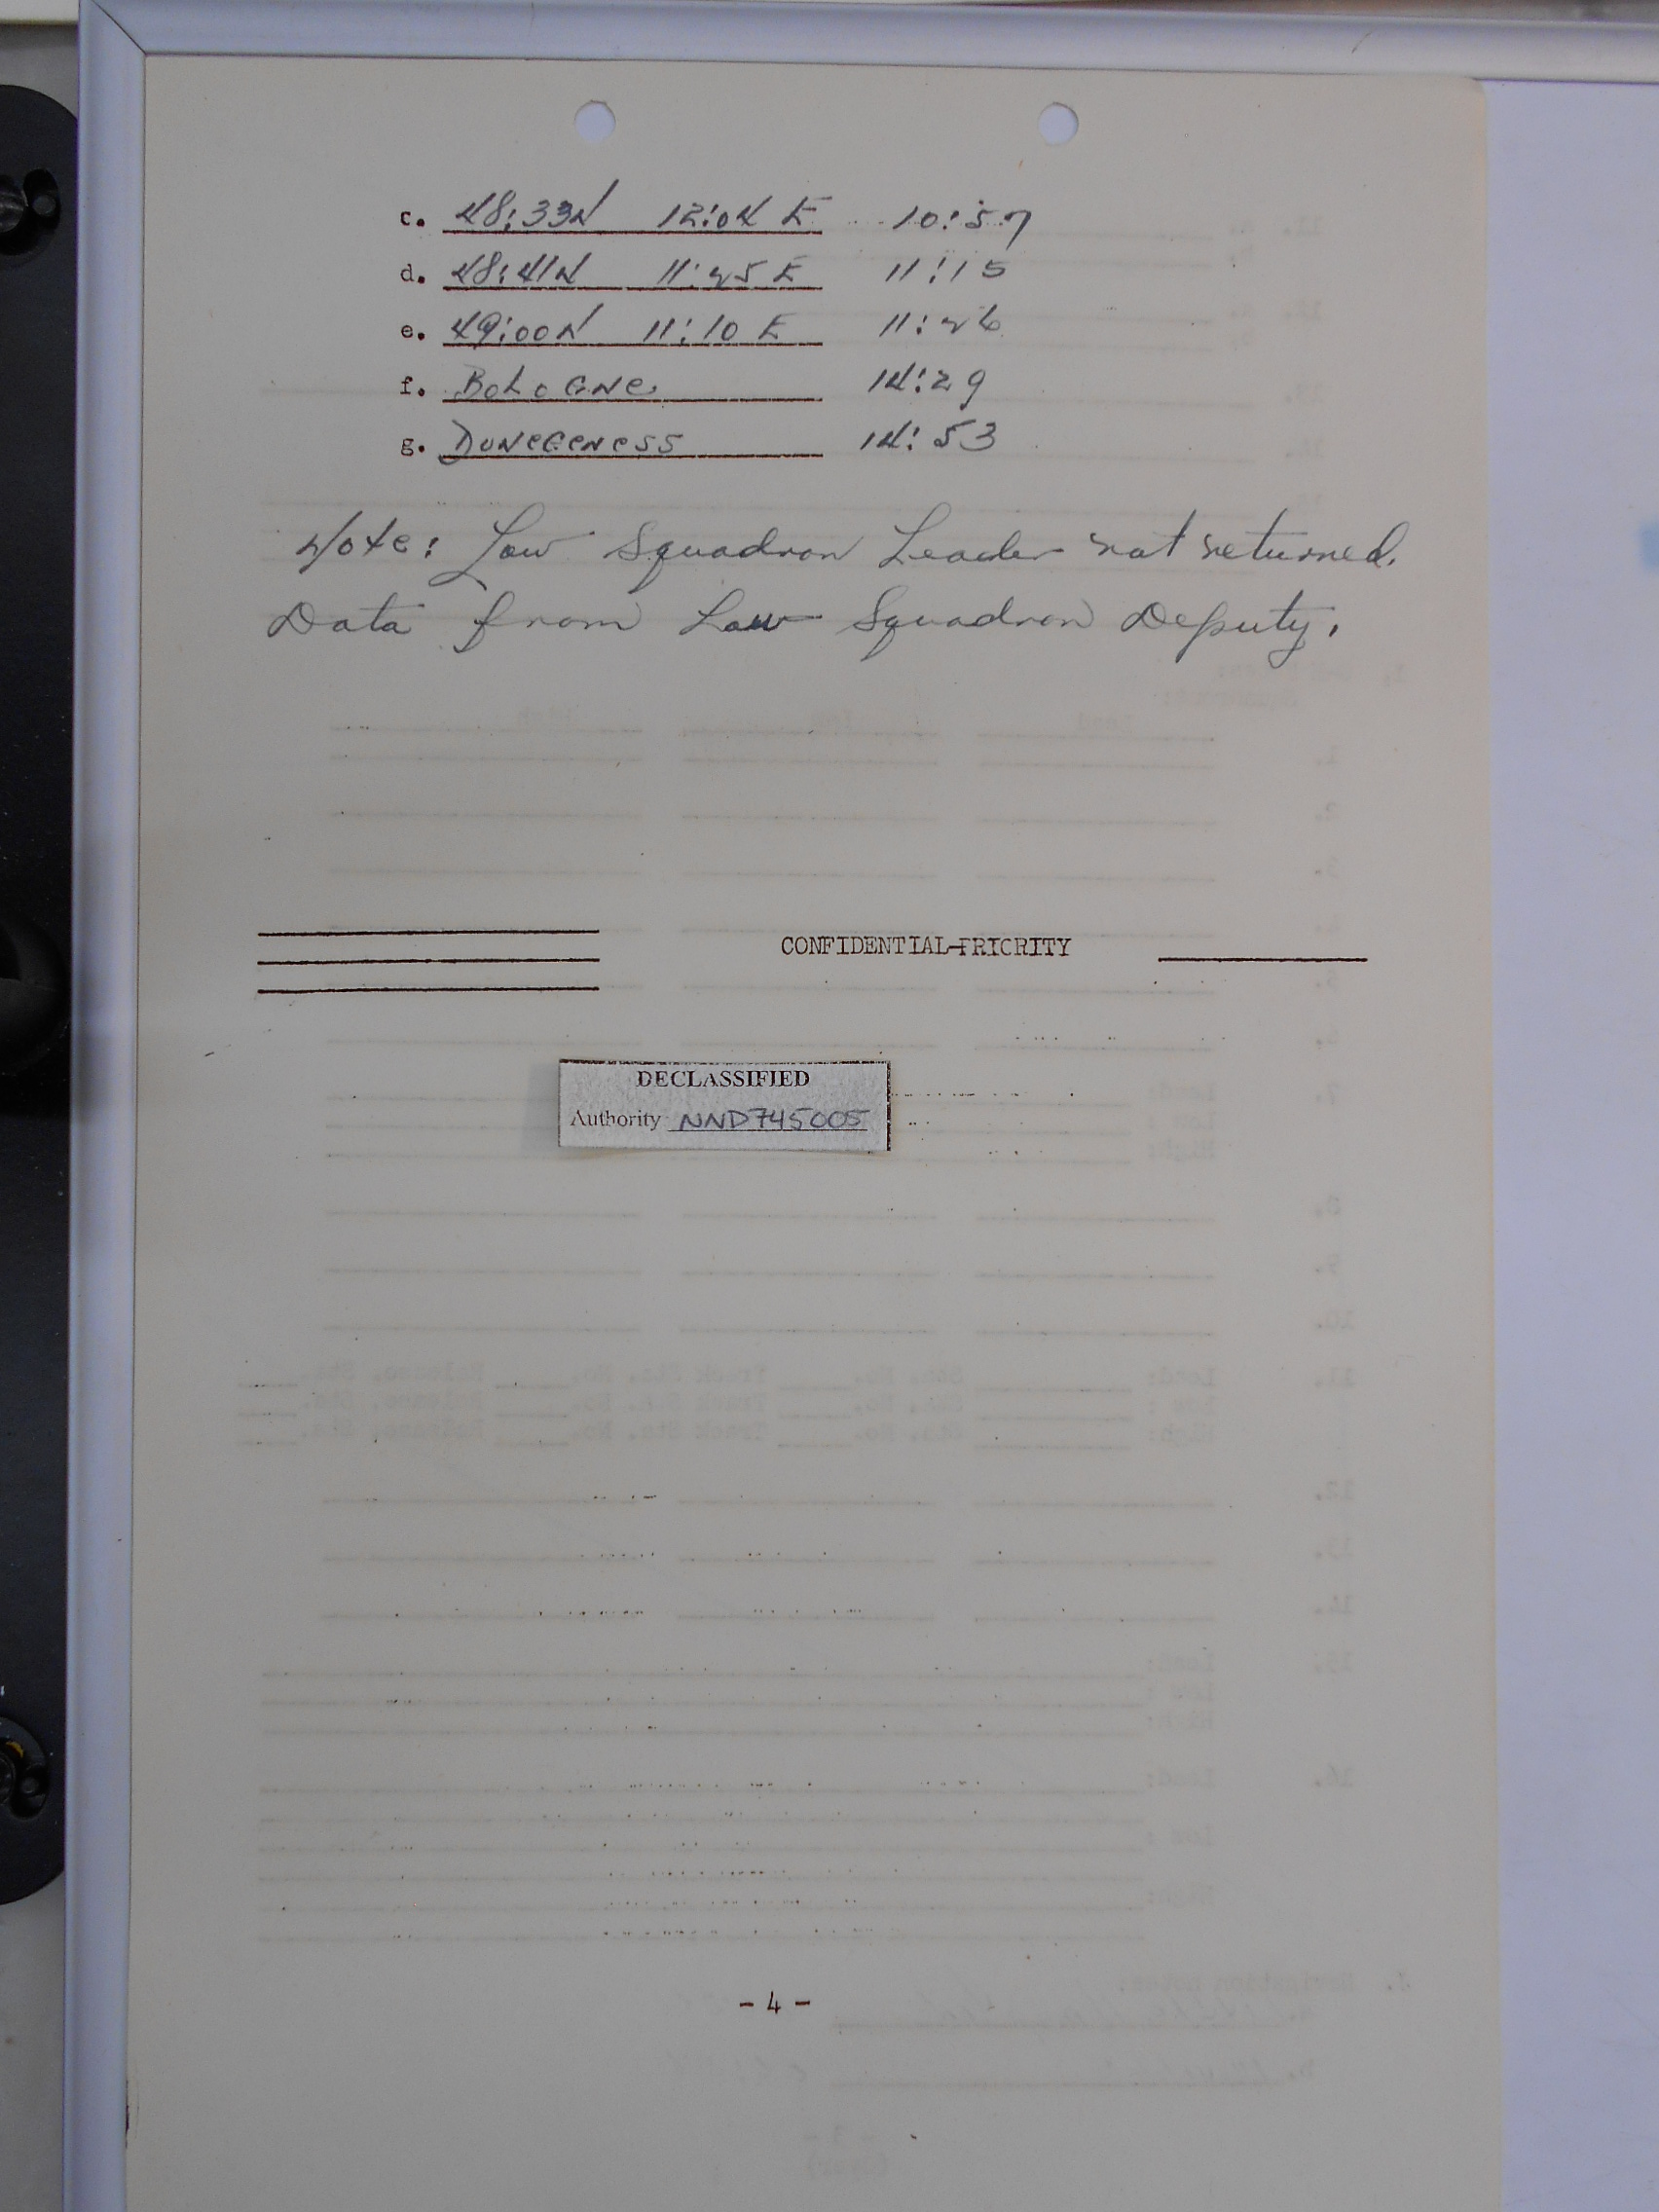 c. 48:33N 12:04 E 10:57
d. 48:41N 11:25 E 11:15
e. 49:00N 11:10 E 11:26
f. BOLOGNe 14:29
g. DUNeGeNess 14:53
Note: Low Squadron Leader not returned.
Data from Low Squadron Deputy.
CONFIDENTIAL-PRIORITY
DECLASSIFIED
Authority NND745005
- 4 -